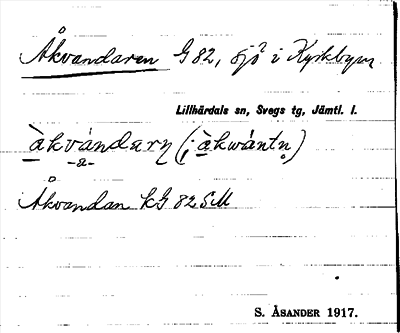 Åkvandaren G 82, sjö i Kyrkbyn
Lillhärdals sn, Svegs tg, Jämtl. l.
àkvándarn (i àkwántn)
-a-
Åkvandan kG 82 SM
S. ÅSANDER 1917.